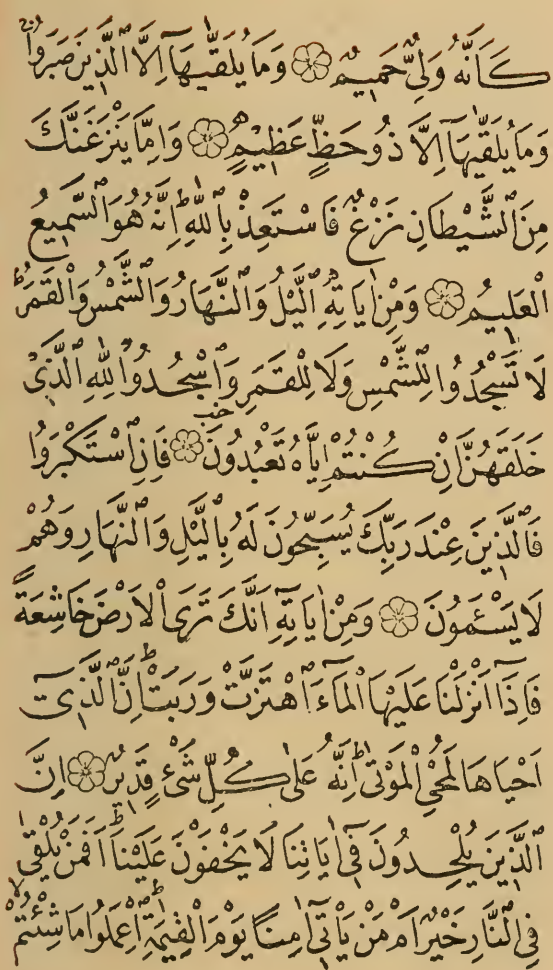 كَاَنَّهُ وَلِيٌّ حَمِيمٌ ۝ وَمَا يُلَقّٰيهَٓا اِلَّا الَّذٖينَ صَبَرُواۚ
وَمَا يُلَقّٰيهَٓا اِلَّا ذُو حَظٍّ عَظٖيمٍ ۝ وَاِمَّا يَنْزَغَنَّكَ
مِنَ الشَّيْطَانِ نَزْغٌ فَاسْتَعِذْ بِاللّٰهِؕ اِنَّهُ هُوَ السَّمٖيعُ
الْعَلٖيمُ ۝ وَمِنْ اٰيَاتِهِ الَّيْلُ وَالنَّهَارُ وَالشَّمْسُ وَالْقَمَرُؕ
لَا تَسْجُدُوا لِلشَّمْسِ وَلَا لِلْقَمَرِ وَاسْجُدُوا لِلّٰهِ الَّذٖى
خَلَقَهُنَّ اِنْ كُنْتُمْ اِيَّاهُ تَعْبُدُونَ ۝ فَاِنِ اسْتَكْبَرُوا
فَالَّذٖينَ عِنْدَ رَبِّكَ يُسَبِّحُونَ لَهُ بِالَّيْلِ وَالنَّهَارِ وَهُمْ
لَا يَسْـَٔمُونَ ۝ وَمِنْ اٰيَاتِهٖٓ اَنَّكَ تَرَى الْاَرْضَ خَاشِعَةً
فَاِذَٓا اَنْزَلْنَا عَلَيْهَا الْمَٓاءَ اهْتَزَّتْ وَرَبَتْؕ اِنَّ الَّذٖٓى
اَحْيَاهَا لَمُحْىِ الْمَوْتٰىؕ اِنَّهُ عَلٰى كُلِّ شَىْءٍ قَدٖيرٌ ۝ اِنَّ
الَّذٖينَ يُلْحِدُونَ فٖٓى اٰيَاتِنَا لَا يَخْفَوْنَ عَلَيْنَاؕ اَفَمَنْ يُلْقٰى
فِى النَّارِ خَيْرٌ اَمْ مَنْ يَاْتٖٓى اٰمِنًا يَوْمَ الْقِيٰمَةِؕ اِعْمَلُوا مَا شِئْتُمْۙ